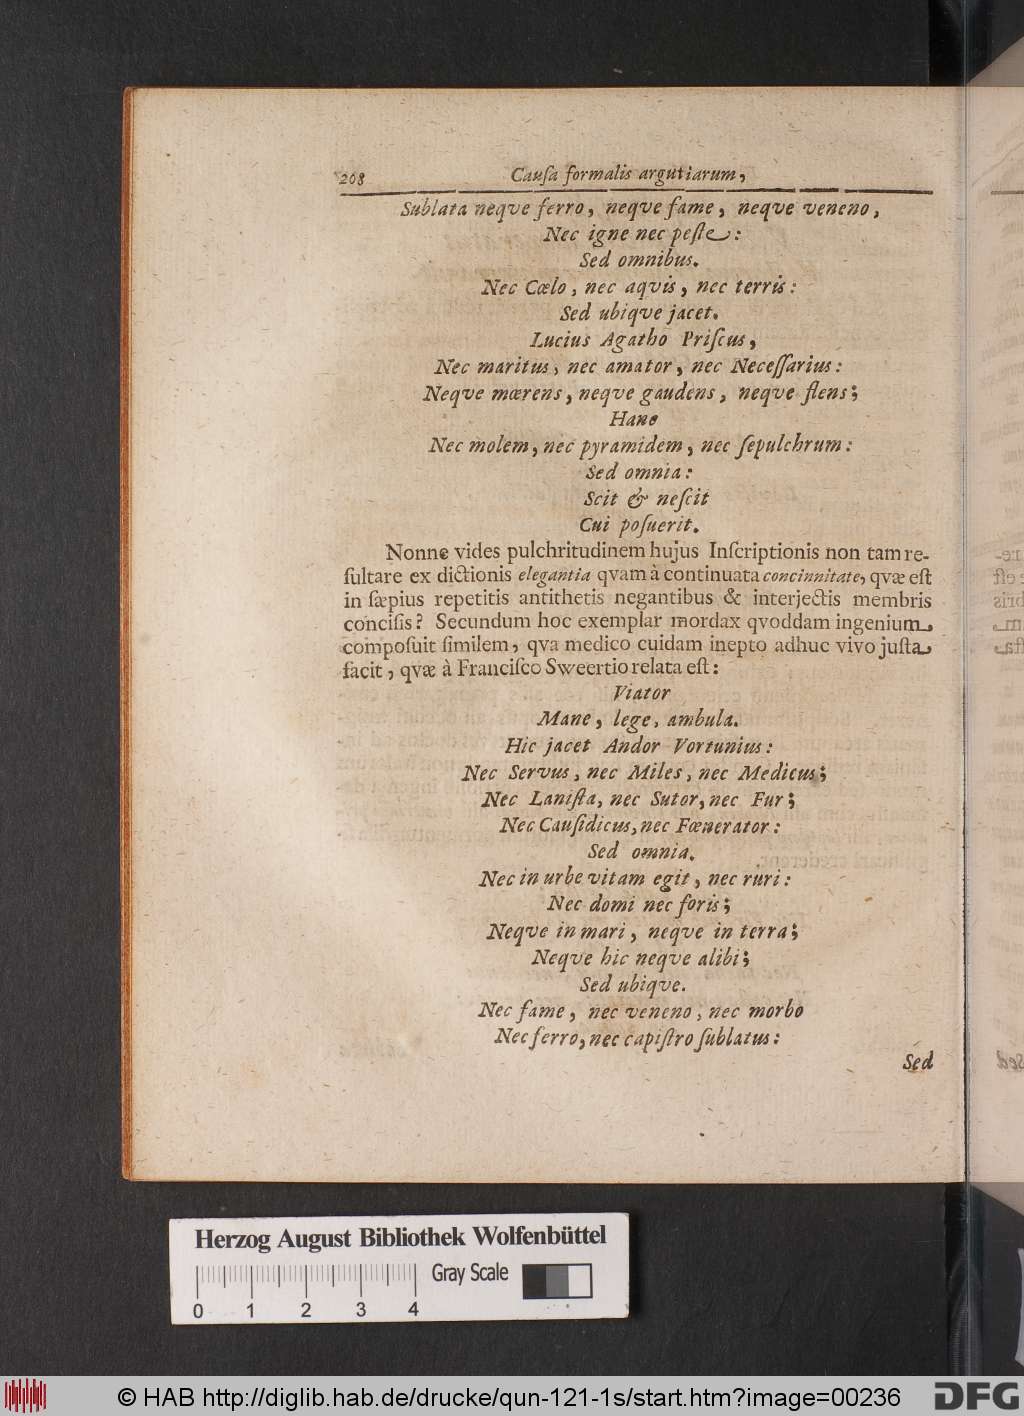 208
Cauſa formalis argutiarum,
Sublata neqve ferro, neqve fame, neqve veneno,
Nec igne nec peſte:
Sed omnibus.
Nec Cœlo, nec aqvis, nec terris:
Sed ubiqve jacet.
Lucius Agatho Priſcus,
Nec maritus, nec amator, nec Neceſſarius:
Neqve mœrens, neqve gaudens, neqve flens;
Hanc
Nec molem, nec pyramidem, nec ſepulchrum:
Sed omnia:
Scit & neſcit
Cui poſuerit.
Nonne vides pulchritudinem hujus Inſcriptionis non tam re-
ſultare ex dictionis elegantia qvam à continuata concinnitate, qvæ eſt
in ſæpius repetitis antithetis negantibus & interjectis membris
conciſis? Secundum hoc exemplar mordax qvoddam ingenium
compoſuit ſimilem, qva medico cuidam inepto adhuc vivo juſta
facit, qvæ à Franciſco Sweertio relata eſt:
Viator
Mane, lege, ambula.
Hic jacet Andor Vortunius:
Nec Servus, nec Miles, nec Medicus;
Nec Laniſta, nec Sutor, nec Fur;
Nec Cauſidicus, nec Fœnerator:
Sed omnia.
Nec in urbe vitam egit, nec ruri:
Nec domi nec foris;
Neqve in mari, neqve in terra;
Neqve hic neqve alibi;
Sed ubiqve.
Nec fame, nec veneno, nec morbo
Nec ferro, nec capiſtro ſublatus:
Sed
Herzog August Bibliothek Wolfenbüttel
Gray Scale
0 1 2 3 4
© HAB http://diglib.hab.de/drucke/qun-121-1s/start.htm?image=00236
DFG